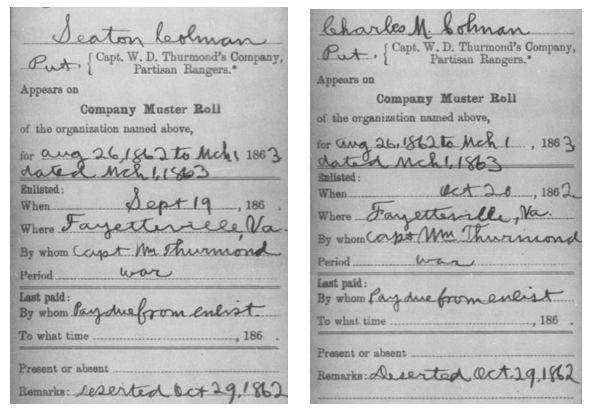 Seaton Colman
Pvt. { Capt. W. D. Thurmond's Company,
Partisan Rangers.*
Appears on
Company Muster Roll
of the organization named above,
for aug 26, 1862 to Mch 1 1863
dated Mch 1, 1863
Enlisted:
When Sept 19 , 186 .
Where Fayetteville, Va.
By whom Capt Wm Thurmond
Period war
Last paid:
By whom Pay due from enlist
To what time , 186 .
Present or absent
Remarks: Deserted Oct 29, 1862
Charles M. Colman
Pvt. { Capt. W. D. Thurmond's Company,
Partisan Rangers.*
Appears on
Company Muster Roll
of the organization named above,
for aug 26, 1862 to Mch 1 , 1863
dated Mch 1, 1863
Enlisted:
When Oct 20 , 1862
Where Fayetteville, Va.
By whom Capt Wm Thurmond
Period war
Last paid:
By whom Pay due from enlist
To what time , 186 .
Present or absent
Remarks: Deserted Oct. 29, 1862